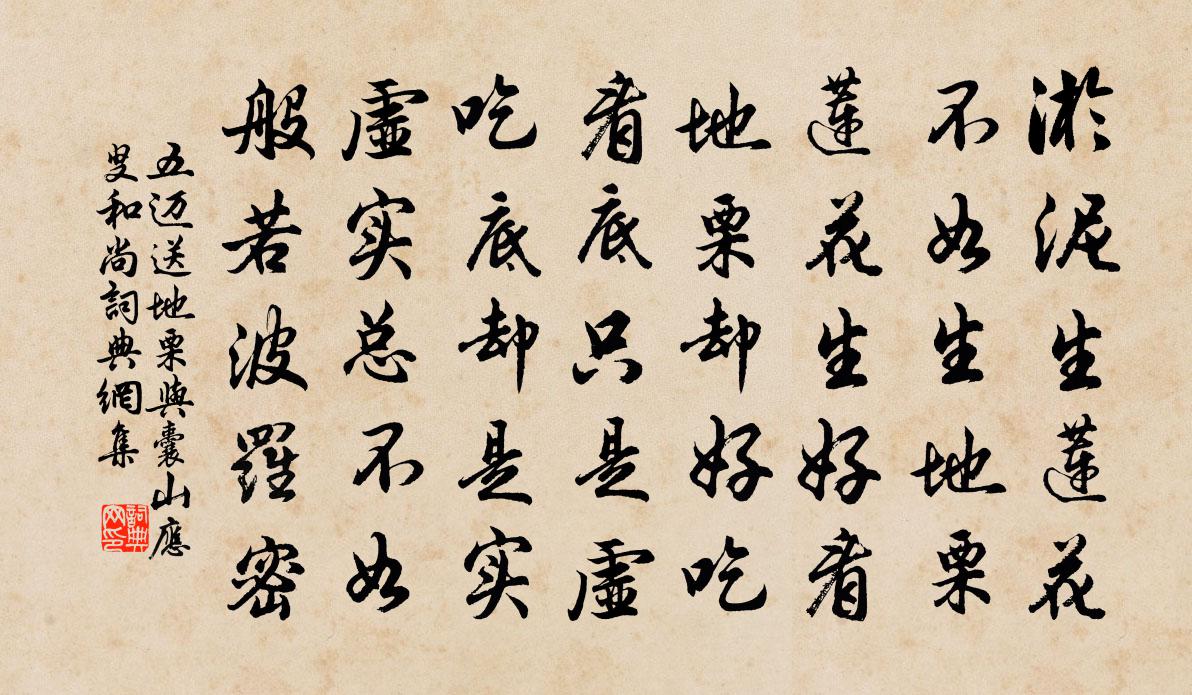 淤泥生莲花
不如生地栗
莲花生好看
地栗却好吃
看底只是虚
吃底却是实
虚实总不如
般若波罗密
五迈送地栗與囊山應
叟和尚詞典網集
詞典网印